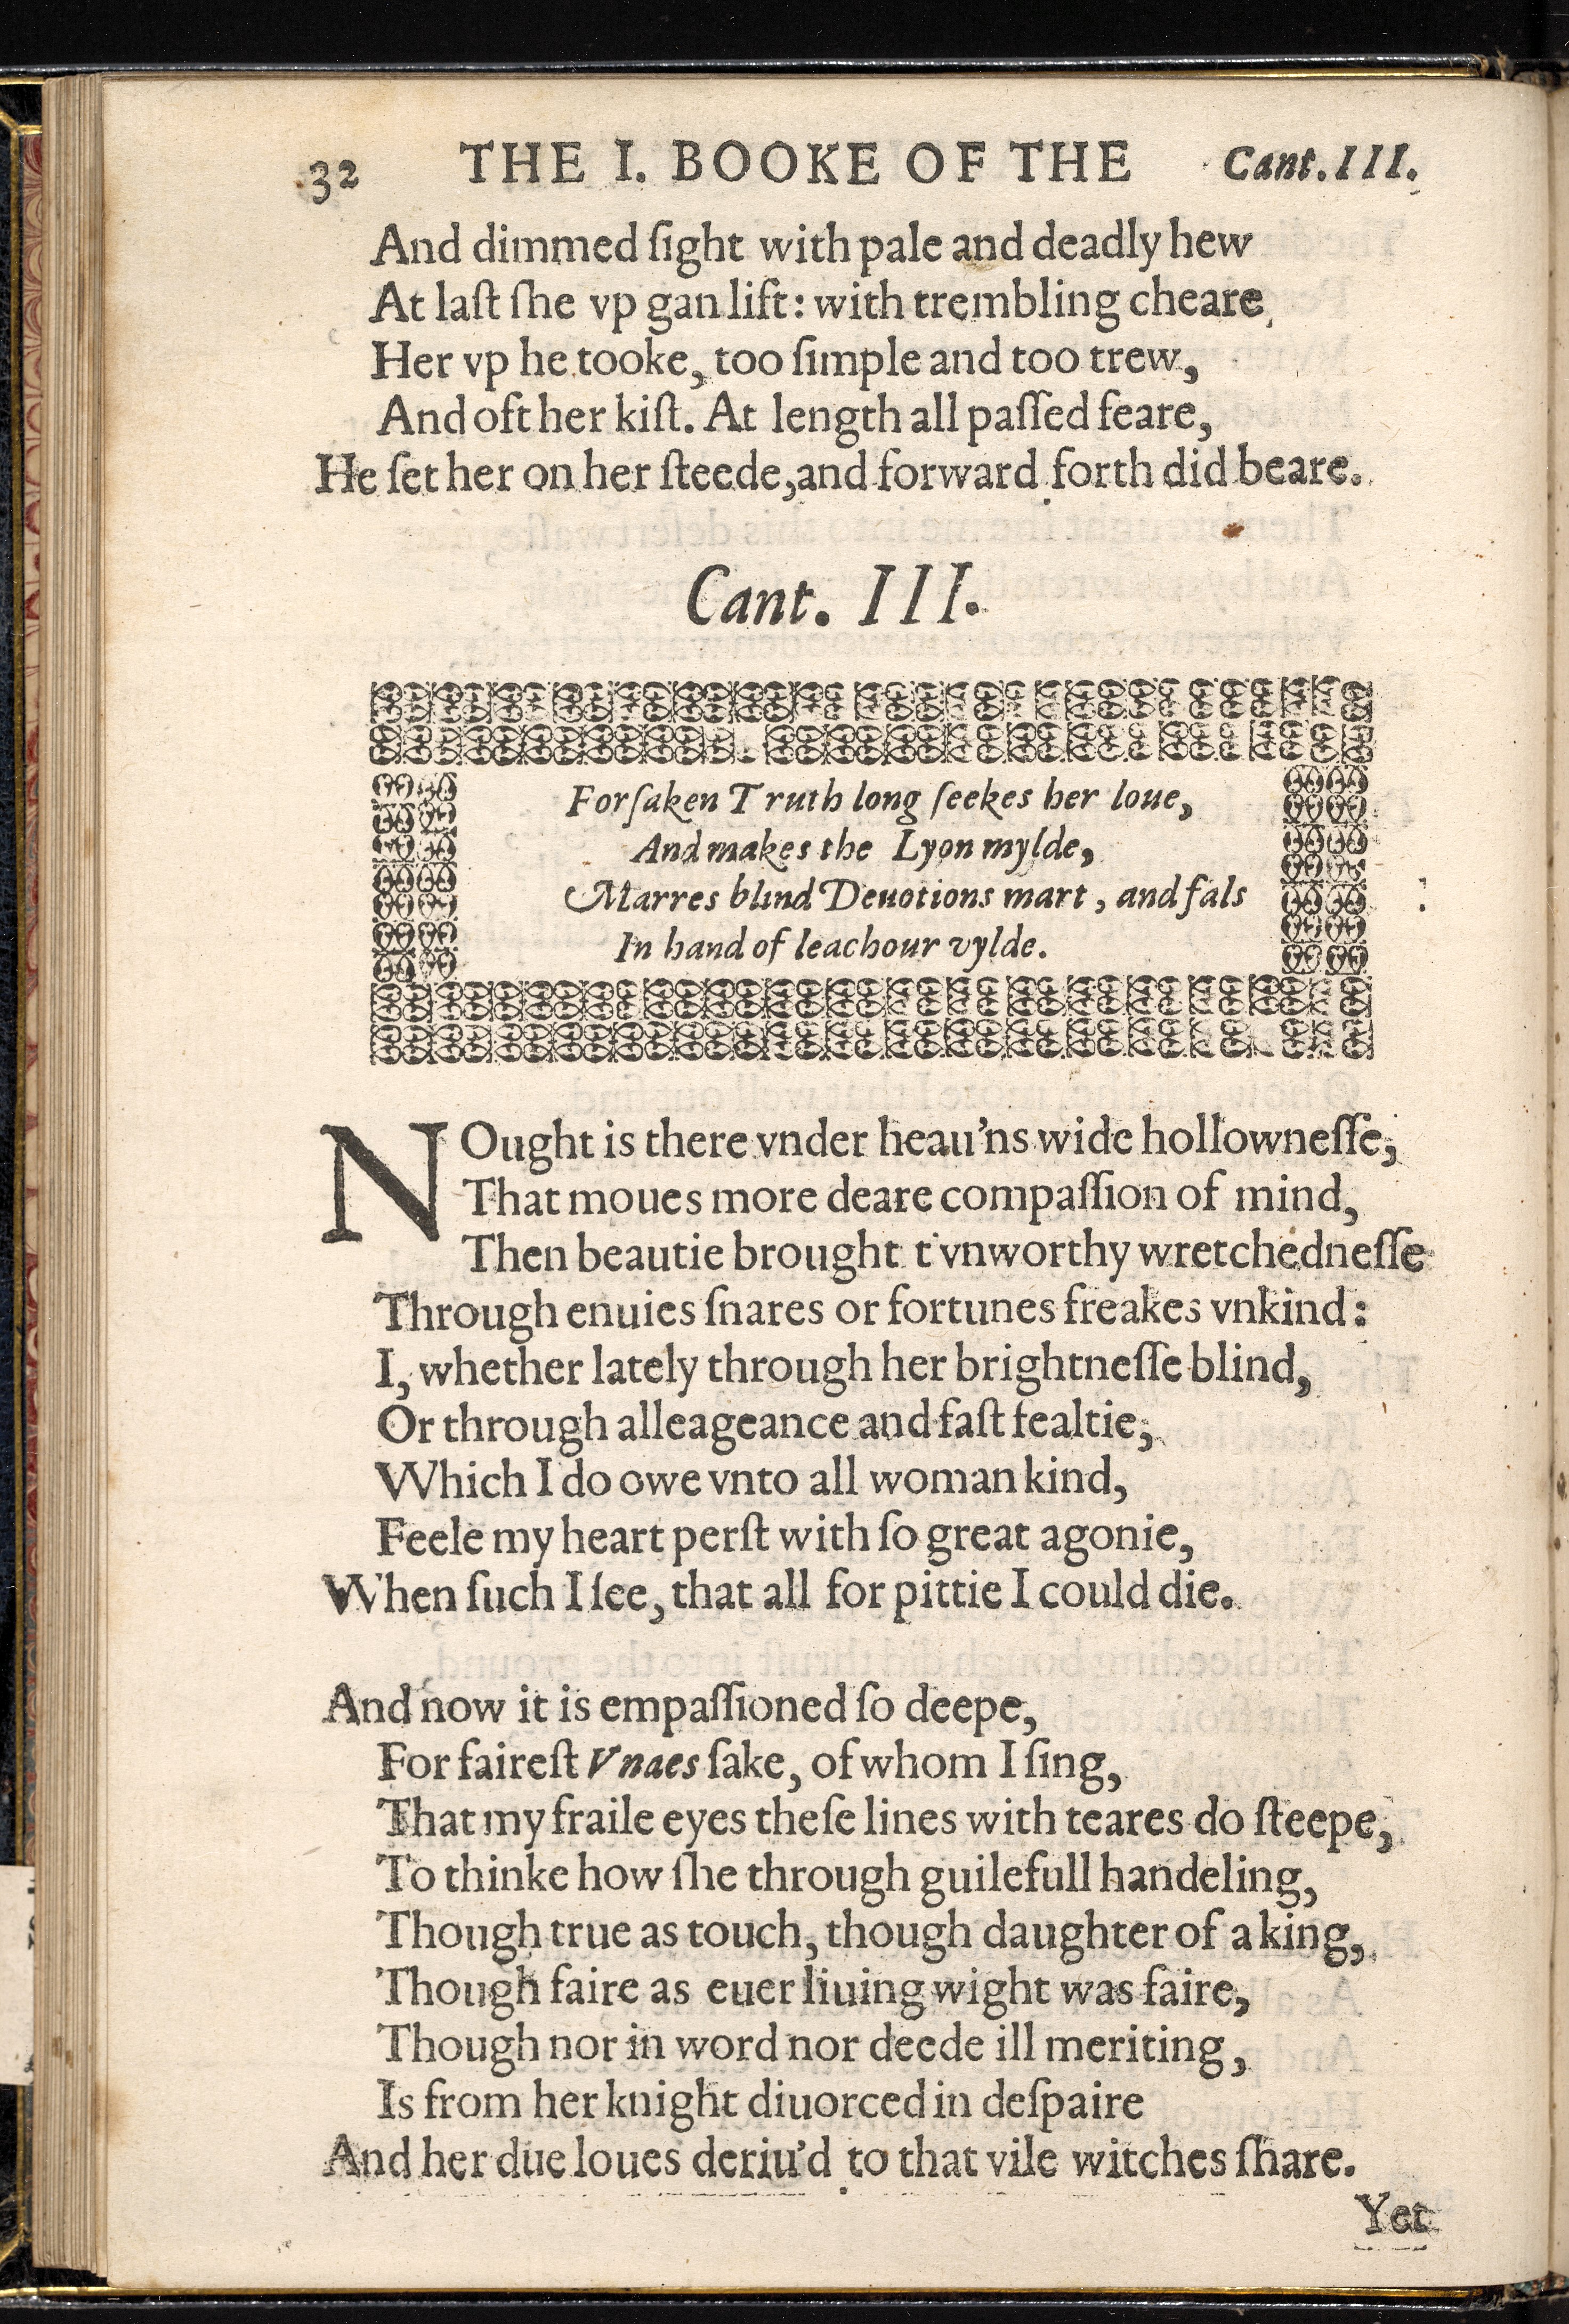 32 THE I. BOOKE OF THE Cant. III.
And dimmed ſight with pale and deadly hew
At laſt ſhe vp gan lift: with trembling cheare,
Her vp he tooke, too ſimple and too trew,
And oft her kiſt. At length all paſſed feare,
He ſet her on her ſteede, and forward forth did beare.
Cant. III.
Forſaken Truth long ſeekes her loue,
And makes the Lyon mylde,
Marres blind Deuotions mart, and fals
In hand of leachour vylde.
NOught is there vnder heau'ns wide hollowneſſe,
That moues more deare compaſſion of mind,
Then beautie brought t'vnworthy wretchedneſſe
Through enuies ſnares or fortunes freakes vnkind:
I, whether lately through her brightneſſe blind,
Or through alleageance and faſt fealtie,
Which I do owe vnto all woman kind,
Feele my heart perſt with ſo great agonie,
When ſuch I ſee, that all for pittie I could die.
And now it is empaſſioned ſo deepe,
For faireſt Vnaes ſake, of whom I ſing,
That my fraile eyes theſe lines with teares do ſteepe,
To thinke how ſhe through guilefull handeling,
Though true as touch, though daughter of a king,
Though faire as euer liuing wight was faire,
Though nor in word nor deede ill meriting,
Is from her knight diuorced in deſpaire
And her due loues deriu'd to that vile witches ſhare.
Yet